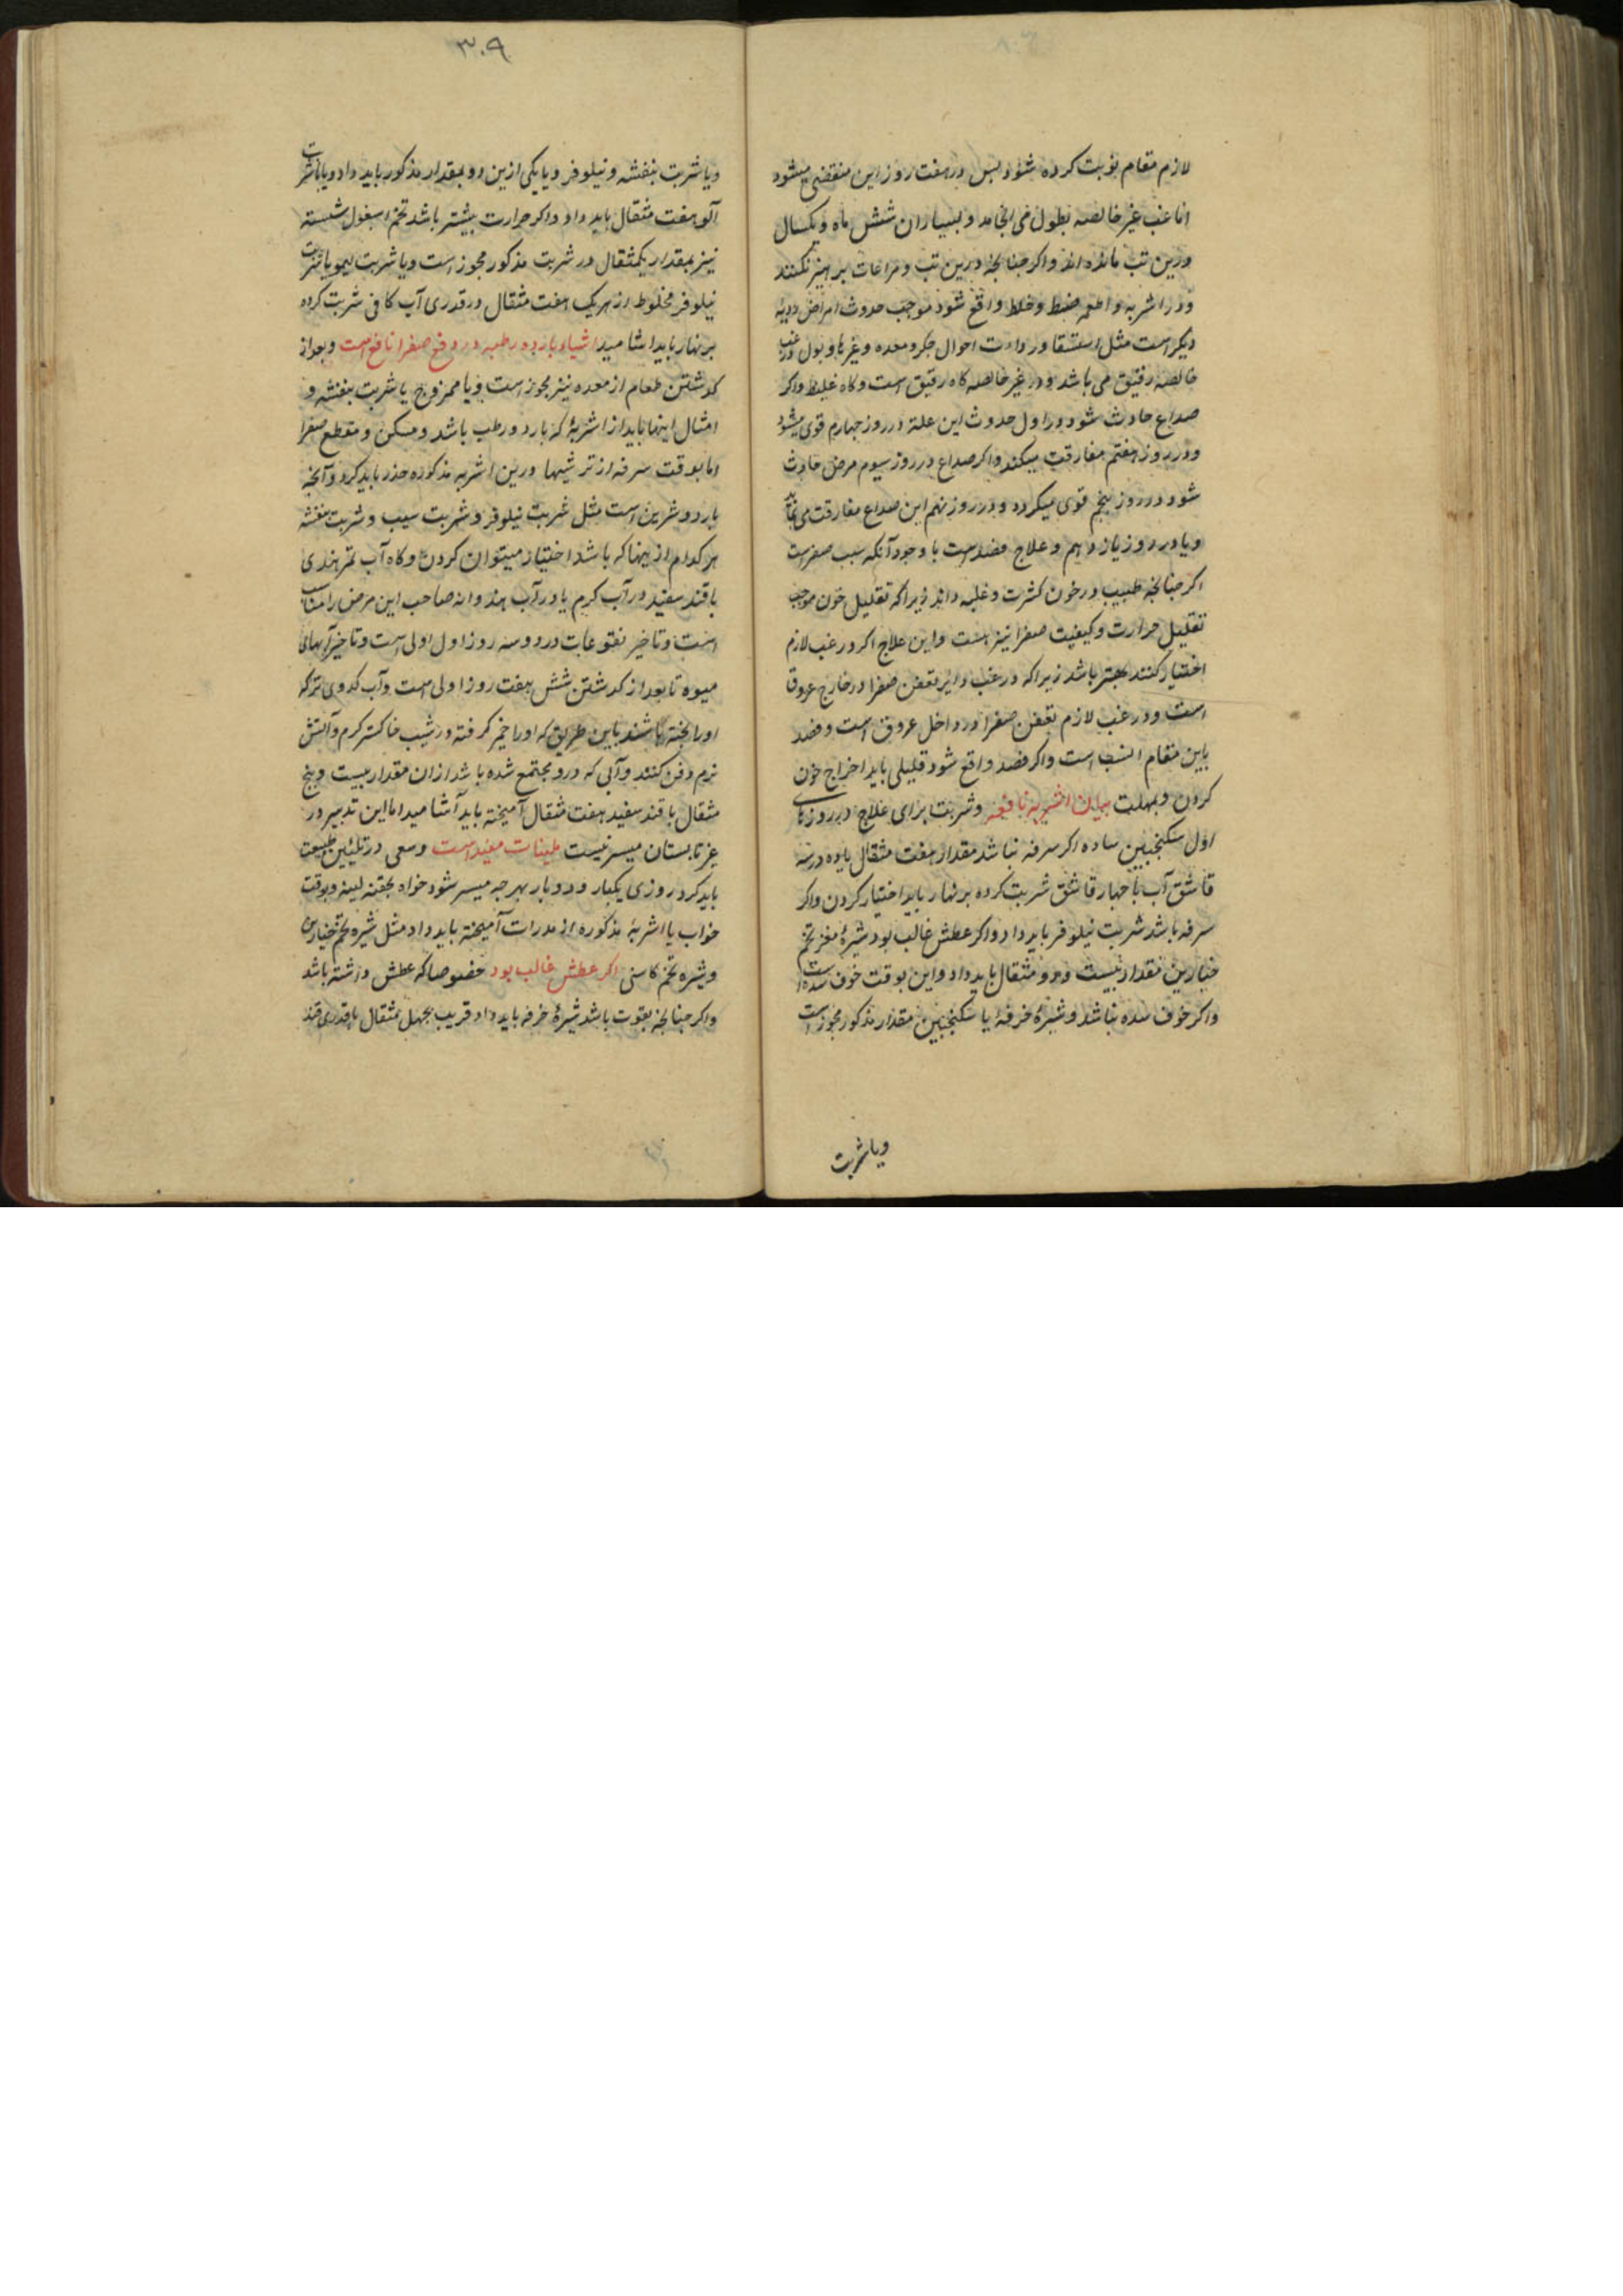 لازم مقام نوبت کرده شود پس در هفت روز این منقضی میشود
اما غب غیر خالصه بطول می انجامد و بسیاران شش ماه و یکسال
درین تب مانده اند و اکر جنانجه درین تب و مراعات پرهیز نکنند
و در اشربه و اطعمه ضبط و خلط واقع شود موجب حدوث امراض ردیه
دیکر است مثل استسقا و رداءت احوال جکر و معده و غیرها و بول در غب
خالصه رقیق می باشد و در غیر خالصه کاه رقیق است و کاه غلیظ و اکر
صداع حادث شود در اول حدوث این علة در روز جهارم قوی میشود
و در روز هفتم مفارقت میکند و اکر صداع در روز سیوم مرض حادث
شود در روز پنجم قوی میکردد و در روز نهم این صداع مفارقت می نماید
و یا در روز یازدهم و علاج فصد است با وجود آنکه سبب صفراست
اکر جنانجه طبیب در خون کثرت و غلبه داند زیرا که تقلیل خون موجب
تقلیل حرارت و کیفیت صفرا نیز هست و این علاج اکر در غب لازم
اختیار کنند بهتر باشد زیرا که در غب دایر تعفن صفرا در خارج عروق
است و در غب لازم تعفن صفرا در داخل عروق است و فصد
باین مقام انسب است و اکر فصد واقع شود قلیلی باید اخراج خون
کردن و بمهلت بیان اشربه نافعه و شربت برای علاج در روزهای
اول سکنجبین ساده اکر سرفه نباشد مقدار هفت مثقال یا ده در سه
قاشق آب یا جهار قاشق شربت کرده بر نهار باید اختیار کردن و اکر
سرفه باشد شربت نیلوفر باید داد و اکر عطش غالب بود شیرهٔ مغز تخم
خیارین مقدار بیست و دو مثقال باید داد و این بوقت خوف سده است
و اکر خوف سده نباشد و شیرهٔ خرفه یا سکنجبین مقدار مذکور مجوز است
و یا شربت
۳۰۹
و یا شربت بنفشه و نیلوفر و یا یکی ازین دو بمقدار مذکور باید داد و یا با شربت
آلو هفت مثقال باید داد و اکر حرارت بیشتر باشد تخم اسبغول شسته
نیز بمقدار یکمثقال در شربت مذکور مجوز است و یا شربت لیمو یا شربت
نیلوفر مخلوط از هر یک هفت مثقال در قدری آب کافی شربت کرده
بر نهار باید اشامید اشیاء بارده رطبه در دفع صفرا نافع است و بعد از
کذشتن طعام از معده نیز مجوز است و یا ممزوج با شربت بنفشه و
امثال اینها باید از اشربهٔ که بارد و رطب باشد و مسکن و مقطع صفرا
اما بوقت سرفه از ترشیها درین اشربه مذکوره حذر باید کرد و آنجه
بارد و شرین است مثل شربت نیلوفر و شربت سیب و شربت بنفشه
هر کدام ازینها که باشد اختیار میتوان کردن و کاه آب تمر هندی
با قند سفید در آب کرم یا در آب هندوانه صاحب این مرض را مناسب
است و تاخیر نقوعات در دو سه روز اول اولی است و تاخیر آبهای
میوه تا بعد از کذشتن شش هفت روز اولی است و آب کدوی تر که
او را پخته باشند باین طریق که او را خمیر کرفته در شیب خاکستر کرم و آتش
نرم دفن کنند و آبی که درو مجتمع شده باشد ازان مقدار بیست و پنج
مثقال با قند سفید هفت مثقال آمیخته باید آشامید اما این تدبیر در
غیر تابستان میسر نیست ملینات مفید است و سعی در تلیین طبیعت
باید کرد روزی یکبار و دو بار بهر جه میسر شود خواه بحقنه لینه و بوقت
خواب یا اشربهٔ مذکوره از مدرات آمیخته باید داد مثل شیره تخم خیارین
و شیره تخم کاسنی اکر عطش غالب بود خصوصا که عطش داشته باشد
و اکر جنانجه بقوت باشد شیرهٔ خرفه باید داد قریب بجهل مثقال با قدری قند